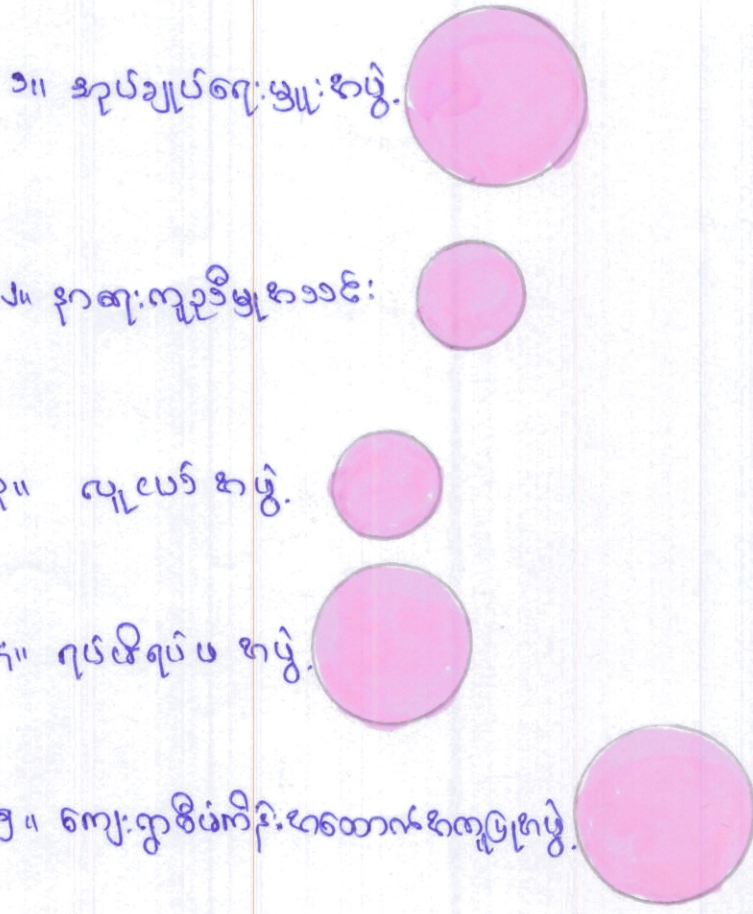 ၁။ အုပ်ချုပ်ရေးမှူးအဖွဲ့
၂။ နာရေးကူညီမှုအသင်း
၃။ လူငယ်အဖွဲ့
၄။ ရပ်မိရပ်ဖအဖွဲ့
၅။ ကျေးရွာစီမံကိန်းအထောက်အကူပြုအဖွဲ့